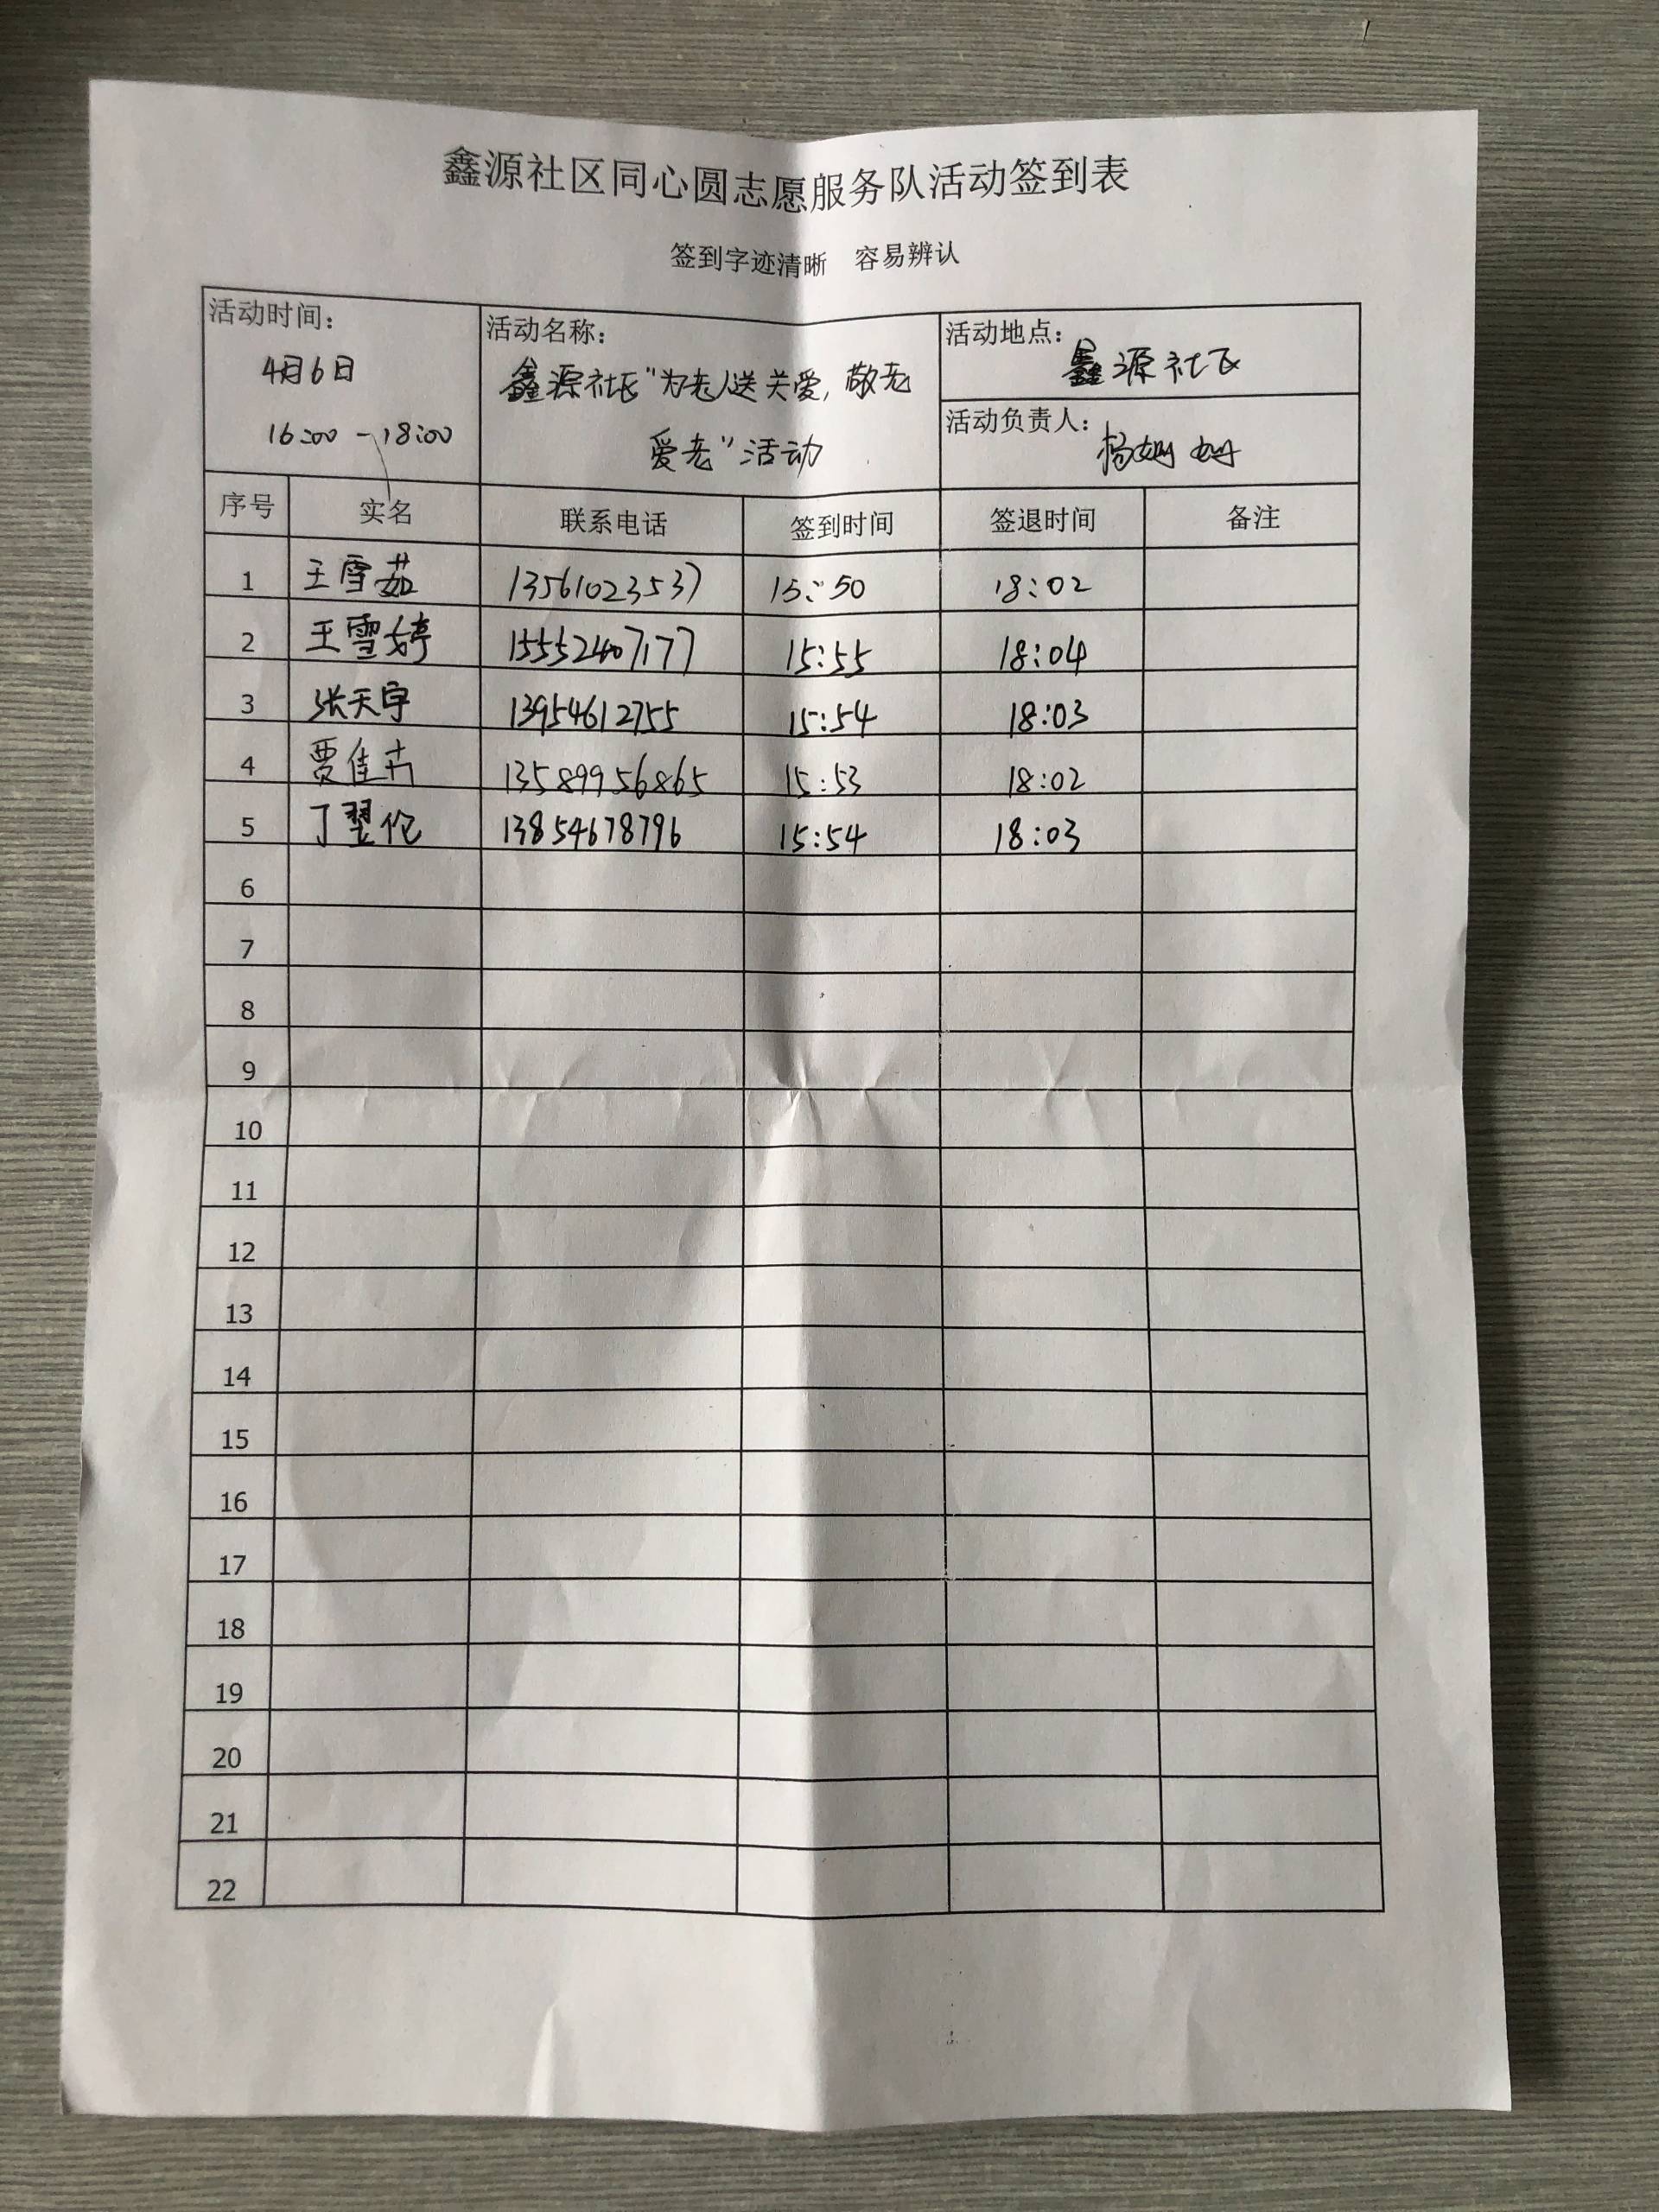 鑫源社区同心圆志愿服务队活动签到表
签到字迹清晰 容易辨认
活动时间: 活动名称: 活动地点:
4月6日 鑫源社区“为老人送关爱,敬老 鑫源社区
16:00-18:00 爱老”活动 活动负责人: 杨姗姗
序号 实名 联系电话 签到时间 签退时间 备注
1 王雪茹 13561023537 15:50 18:02
2 王雪婷 15552407177 15:55 18:04
3 张天宇 13954612755 15:54 18:03
4 贾佳卉 13589956865 15:53 18:02
5 丁翌伦 13854678796 15:54 18:03
6
7
8
9
10
11
12
13
14
15
16
17
18
19
20
21
22